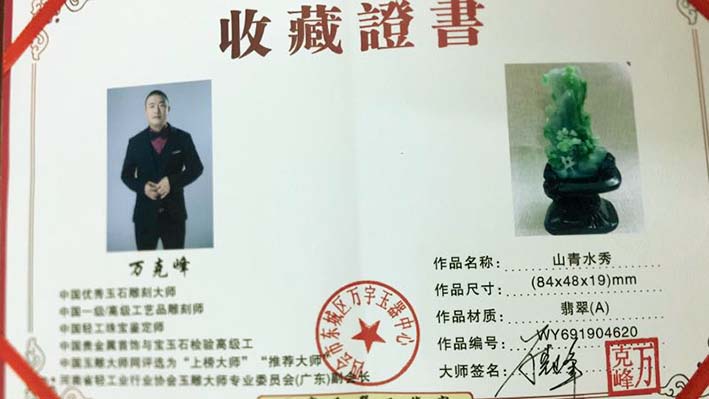 收藏證書
万克峰
中国优秀玉石雕刻大师
中国一级/高级工艺品雕刻师
中国轻工珠宝鉴定师
中国贵金属首饰与宝玉石检验高级工
中国玉雕大师网评选为“上榜大师”“推荐大师”
河南省轻工业行业协会玉雕大师专业委员会(广东)副会长
四会市东城区万宇玉器中心
作品名称: 山青水秀
作品尺寸: (84x48x19)mm
作品材质: 翡翠(A)
作品编号: WY691904620
大师签名:
万克峰